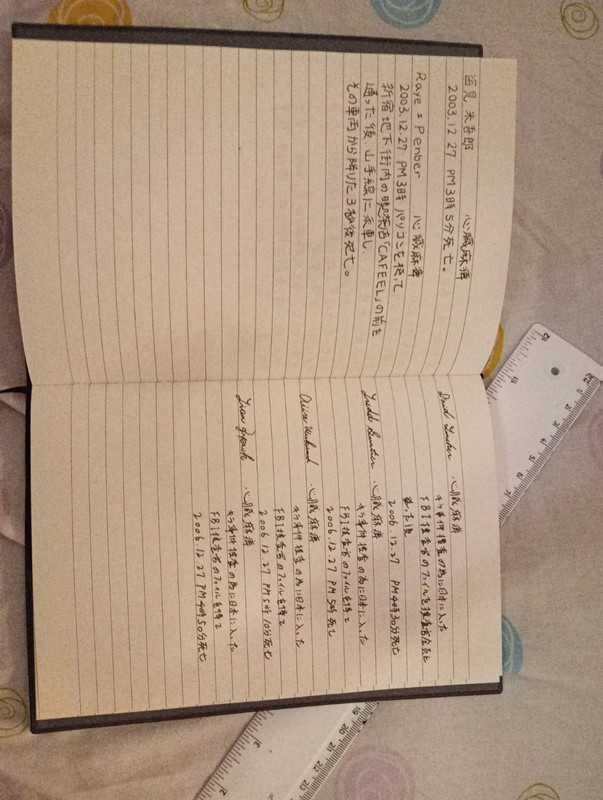 心臓麻痺
2003. 12. 27 PM 3時 5分死亡。
Raye = Penber 心臓麻痺
2003. 12. 27 PM 3時 パソコンを使って
新宿地下街内の喫茶店「CAFEEL」の前を
通った後 山手線に乗車し
その車両から降りた3秒後死亡。
心臓麻痺
キラ事件捜査の為に日本に入った
FBI捜査官のファイルを捜査官全員に
2006. 12. 27 PM 4時30分死亡
心臓麻痺
キラ事件捜査の為に日本に入った
FBI捜査官のファイルを得て
2006. 12. 27 PM 5時死亡
心臓麻痺
FBI捜査官のファイルを得て
2006. 12. 27 PM 5時10分死亡
心臓麻痺
キラ事件捜査の為に日本に入った
FBI捜査官のファイルを得て
2006. 12. 27 PM 4時50分死亡